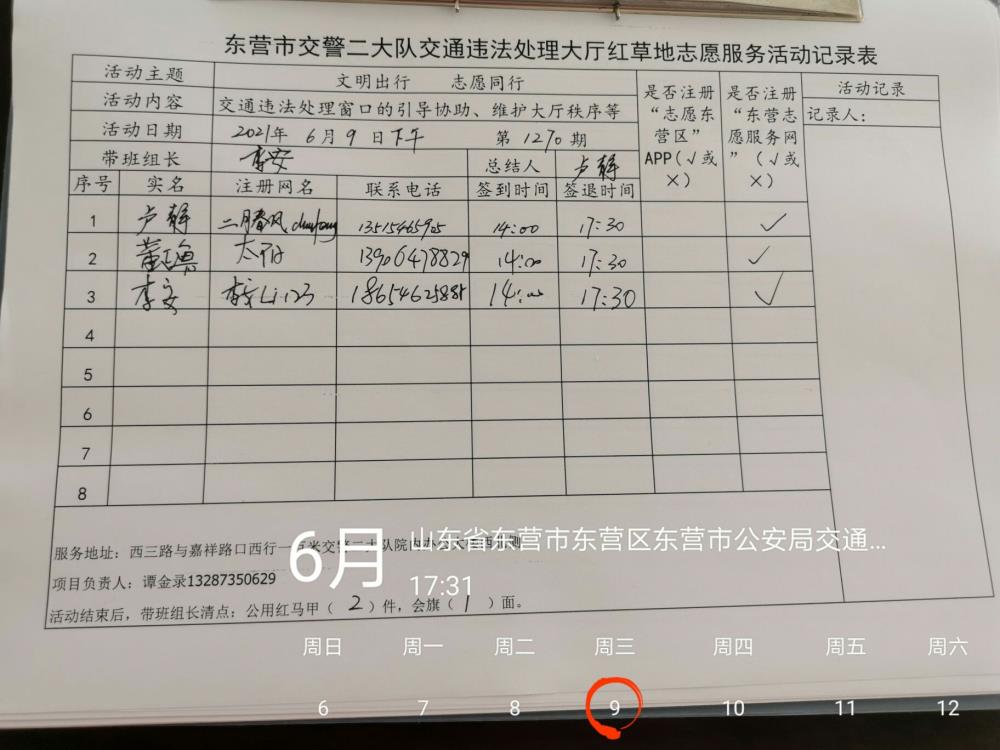 东营市交警二大队交通违法处理大厅红草地志愿服务活动记录表
活动主题 文明出行 志愿同行 是否注册“志愿东营区”APP(√或×) 是否注册“东营志愿服务网”(√或×) 活动记录
活动内容 交通违法处理窗口的引导协助、维护大厅秩序等 记录人:
活动日期 2021年 6月 9日下午 第1270期
带班组长 李安 总结人 卢静
序号 实名 注册网名 联系电话 签到时间 签退时间
1 卢静 二月春风 13515465905 14:00 17:30 ✓
2 太阳 13906478829 14:00 17:30 ✓
3 李安 李安Li123 18654625885 14:00 17:30 ✓
4
5
6
7
8
服务地址:西三路与嘉祥路口西行一百米交警二大队院内
项目负责人:谭金录13287350629
活动结束后,带班组长清点:公用红马甲(2)件,会旗(1)面。
6月
山东省东营市东营区东营市公安局交通...
17:31
周日 周一 周二 周三 周四 周五 周六
6 7 8 9 10 11 12